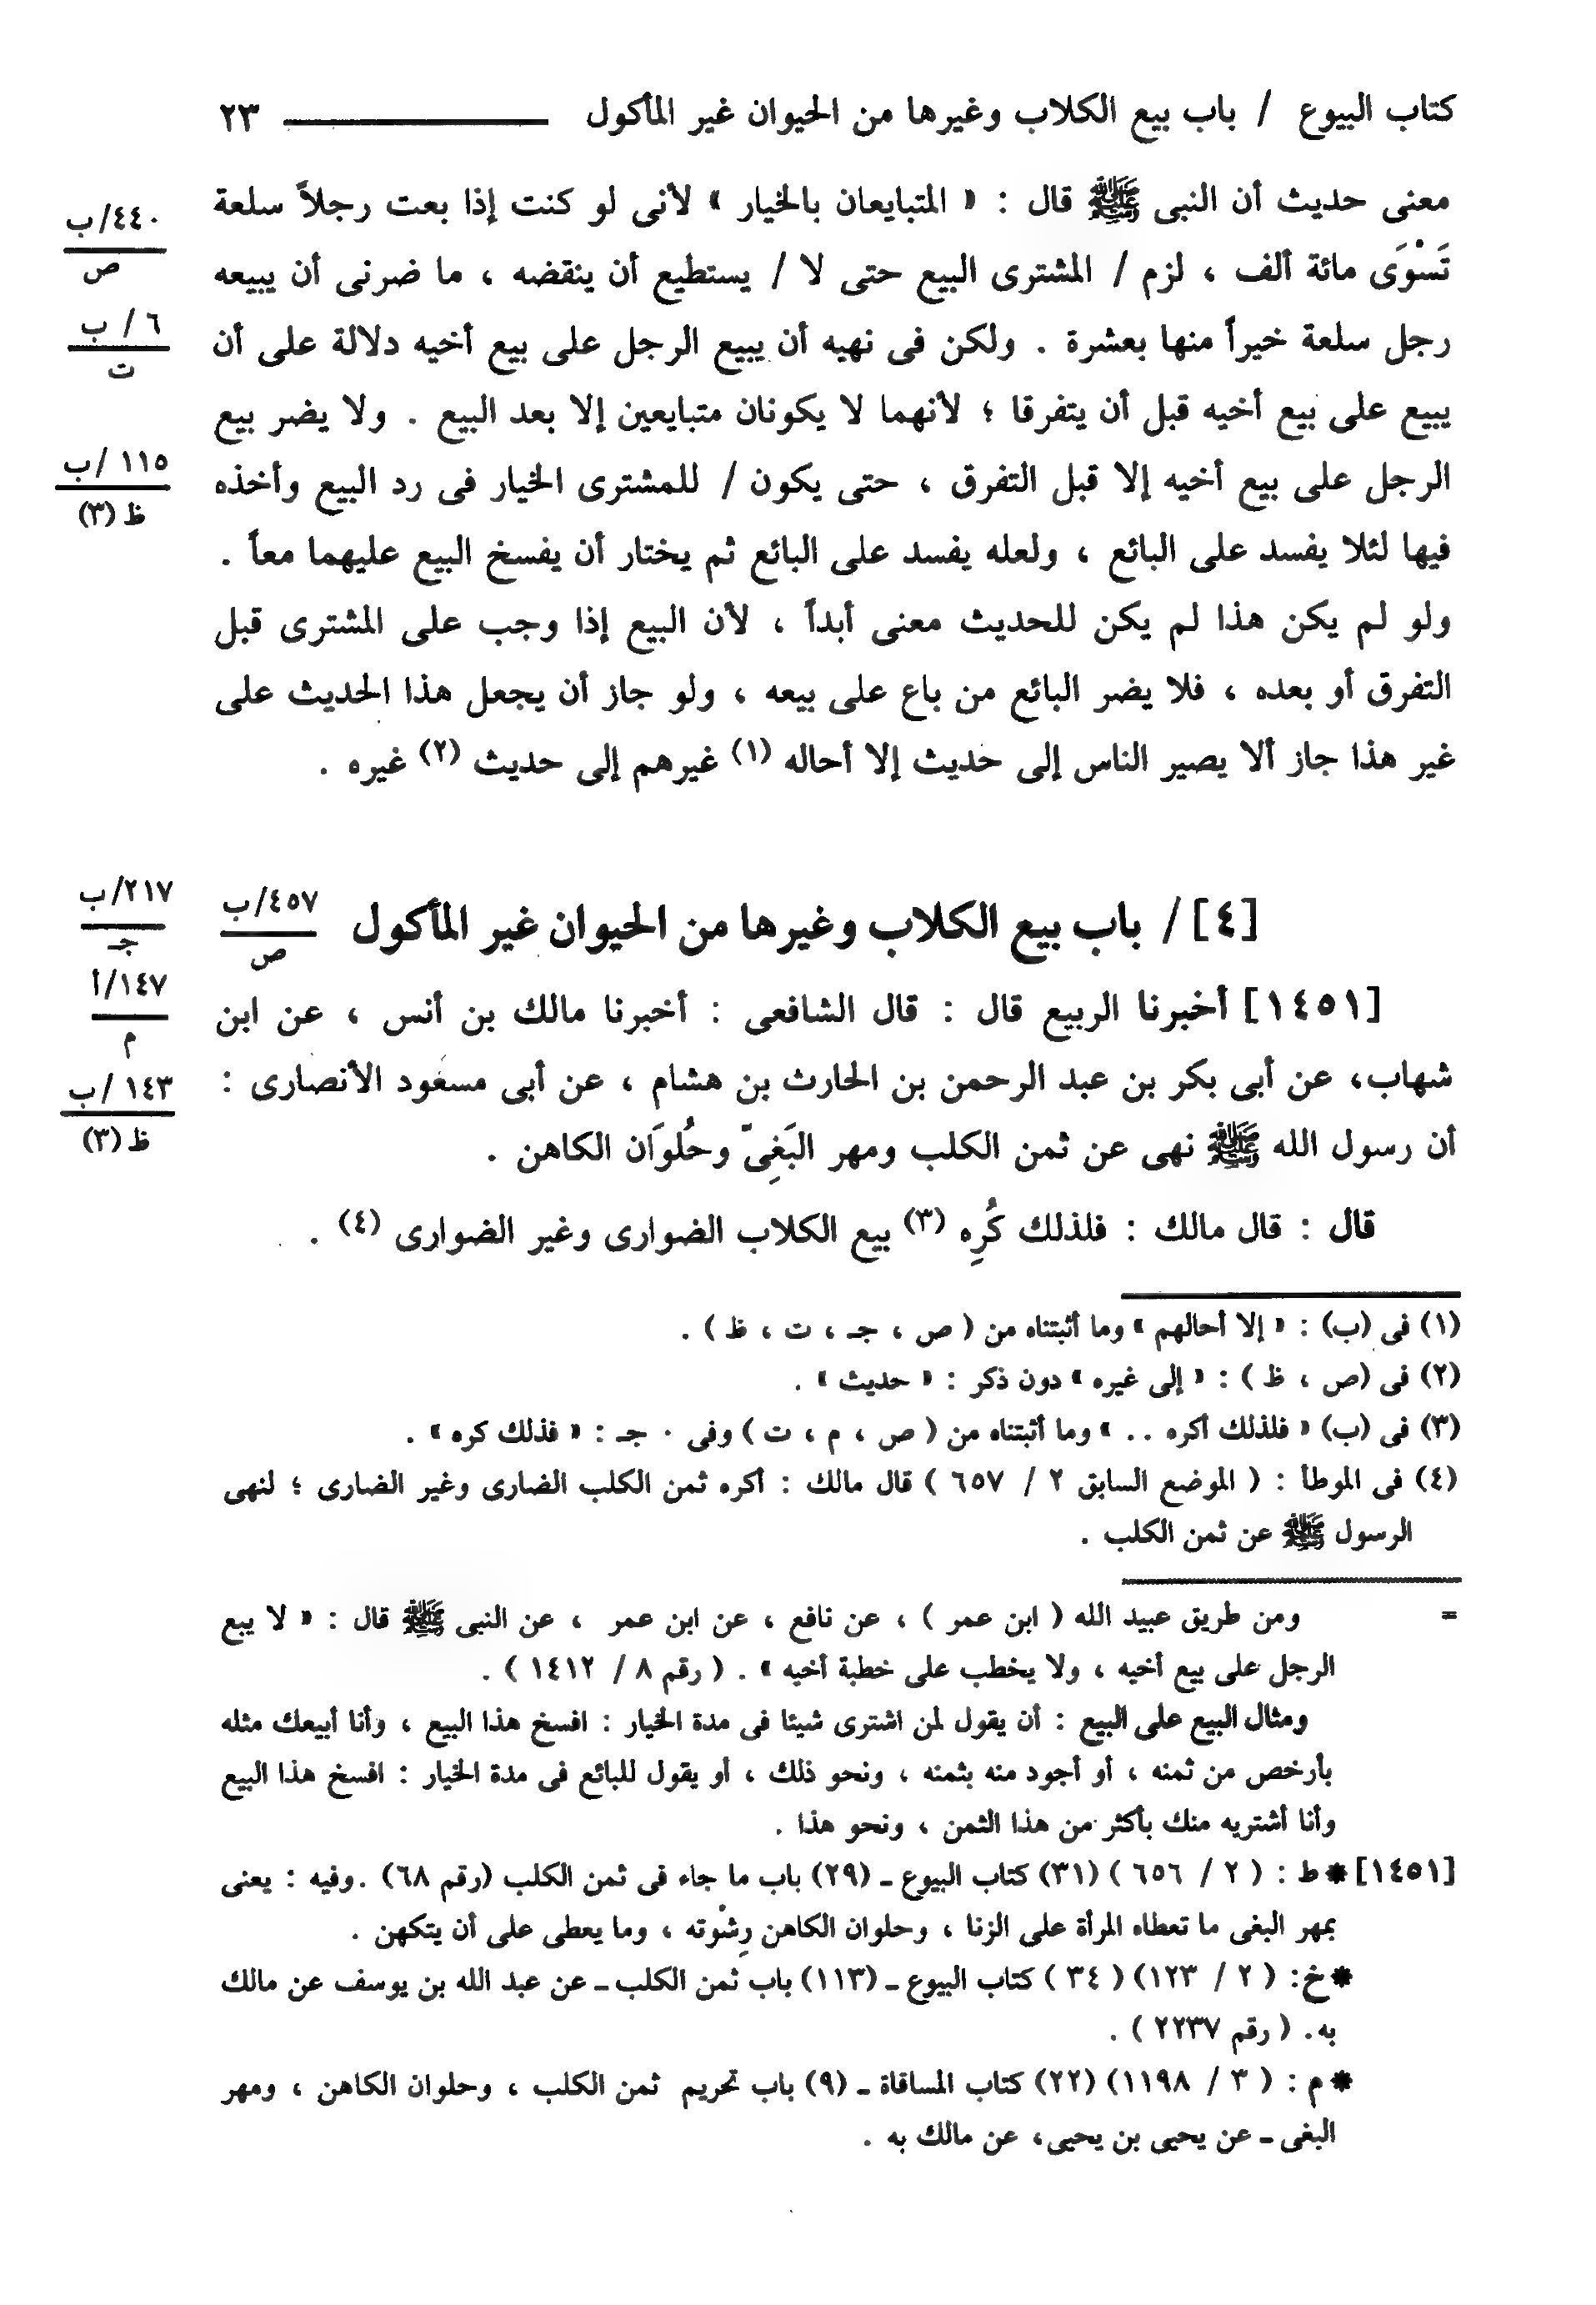 كتاب البيوع / باب بيع الكلاب وغيرها من الحيوان غير المأكول ــــــــــــ ٢٣
معنى حديث أن النبى ﷺ قال : « المتبايعان بالخيار » لأنى لو كنت إذا بعت رجلاً سلعة
٤٤٠/ب
ص
تَسْوَى مائة ألف ، لزم / المشترى البيع حتى لا / يستطيع أن ينقضه ، ما ضرنى أن يبيعه
٦ / ب
ت
رجل سلعة خيراً منها بعشرة . ولكن فى نهيه أن يبيع الرجل على بيع أخيه دلالة على أن
يبيع على بيع أخيه قبل أن يتفرقا ؛ لأنهما لا يكونان متبايعين إلا بعد البيع . ولا يضر بيع
الرجل على بيع أخيه إلا قبل التفرق ، حتى يكون / للمشترى الخيار فى رد البيع وأخذه
١١٥ /ب
ظ (٣)
فيها لئلا يفسد على البائع ، ولعله يفسد على البائع ثم يختار أن يفسخ البيع عليهما معاً .
ولو لم يكن هذا لم يكن للحديث معنى أبداً ، لأن البيع إذا وجب على المشترى قبل
التفرق أو بعده ، فلا يضر البائع من باع على بيعه ، ولو جاز أن يجعل هذا الحديث على
غير هذا جاز ألا يصير الناس إلى حديث إلا أحاله (١) غيرهم إلى حديث (٢) غيره .
[٤] / باب بيع الكلاب وغيرها من الحيوان غير المأكول
٤٥٧/ب
ص
٢١٧/ب
جـ
[١٤٥١] أخبرنا الربيع قال : قال الشافعى : أخبرنا مالك بن أنس ، عن ابن
١٤٧/أ
م
شهاب، عن أبى بكر بن عبد الرحمن بن الحارث بن هشام ، عن أبى مسعود الأنصارى :
١٤٣ /ب
ظ (٣)
أن رسول الله ﷺ نهى عن ثمن الكلب ومهر البَغِىّ وحُلوَان الكاهن .
قال : قال مالك : فلذلك كُرِه (٣) بيع الكلاب الضوارى وغير الضوارى (٤) .
(١) فى (ب) : « إلا أحالهم » وما أثبتناه من ( ص ، جـ ، ت ، ظ ) .
(٢) فى (ص ، ظ ) : « إلى غيره » دون ذكر : « حديث » .
(٣) فى (ب) « فلذلك أكره .. » وما أثبتناه من ( ص ، م ، ت ) وفى . جـ : « فذلك كره » .
(٤) فى الموطأ : ( الموضع السابق ٢ / ٦٥٧ ) قال مالك : أكره ثمن الكلب الضارى وغير الضارى ؛ لنهى
الرسول ﷺ عن ثمن الكلب .
= ومن طريق عبيد الله ( ابن عمر ) ، عن نافع ، عن ابن عمر ، عن النبى ﷺ قال : « لا يبع
الرجل على بيع أخيه ، ولا يخطب على خطبة أخيه » . ( رقم ٨ / ١٤١٢ ) .
ومثال البيع على البيع : أن يقول لمن اشترى شيئا فى مدة الخيار : افسخ هذا البيع ، وأنا أبيعك مثله
بأرخص من ثمنه ، أو أجود منه بثمنه ، ونحو ذلك ، أو يقول للبائع فى مدة الخيار : افسخ هذا البيع
وأنا أشتريه منك بأكثر من هذا الثمن ، ونحو هذا .
[١٤٥١] * ط : ( ٢ / ٦٥٦ ) (٣١) كتاب البيوع ـ (٢٩) باب ما جاء فى ثمن الكلب (رقم ٦٨) .وفيه : يعنى
بمهر البغى ما تعطاه المرأة على الزنا ، وحلوان الكاهن رِشْوته ، وما يعطى على أن يتكهن .
* خ: ( ٢ / ١٢٣) ( ٣٤ ) كتاب البيوع ـ (١١٣) باب ثمن الكلب ـ عن عبد الله بن يوسف عن مالك
به. ( رقم ٢٢٣٧ ) .
* م : ( ٣ / ١١٩٨) (٢٢) كتاب المساقاة ـ (٩) باب تحريم ثمن الكلب ، وحلوان الكاهن ، ومهر
البغى ـ عن يحيى بن يحيى، عن مالك به .